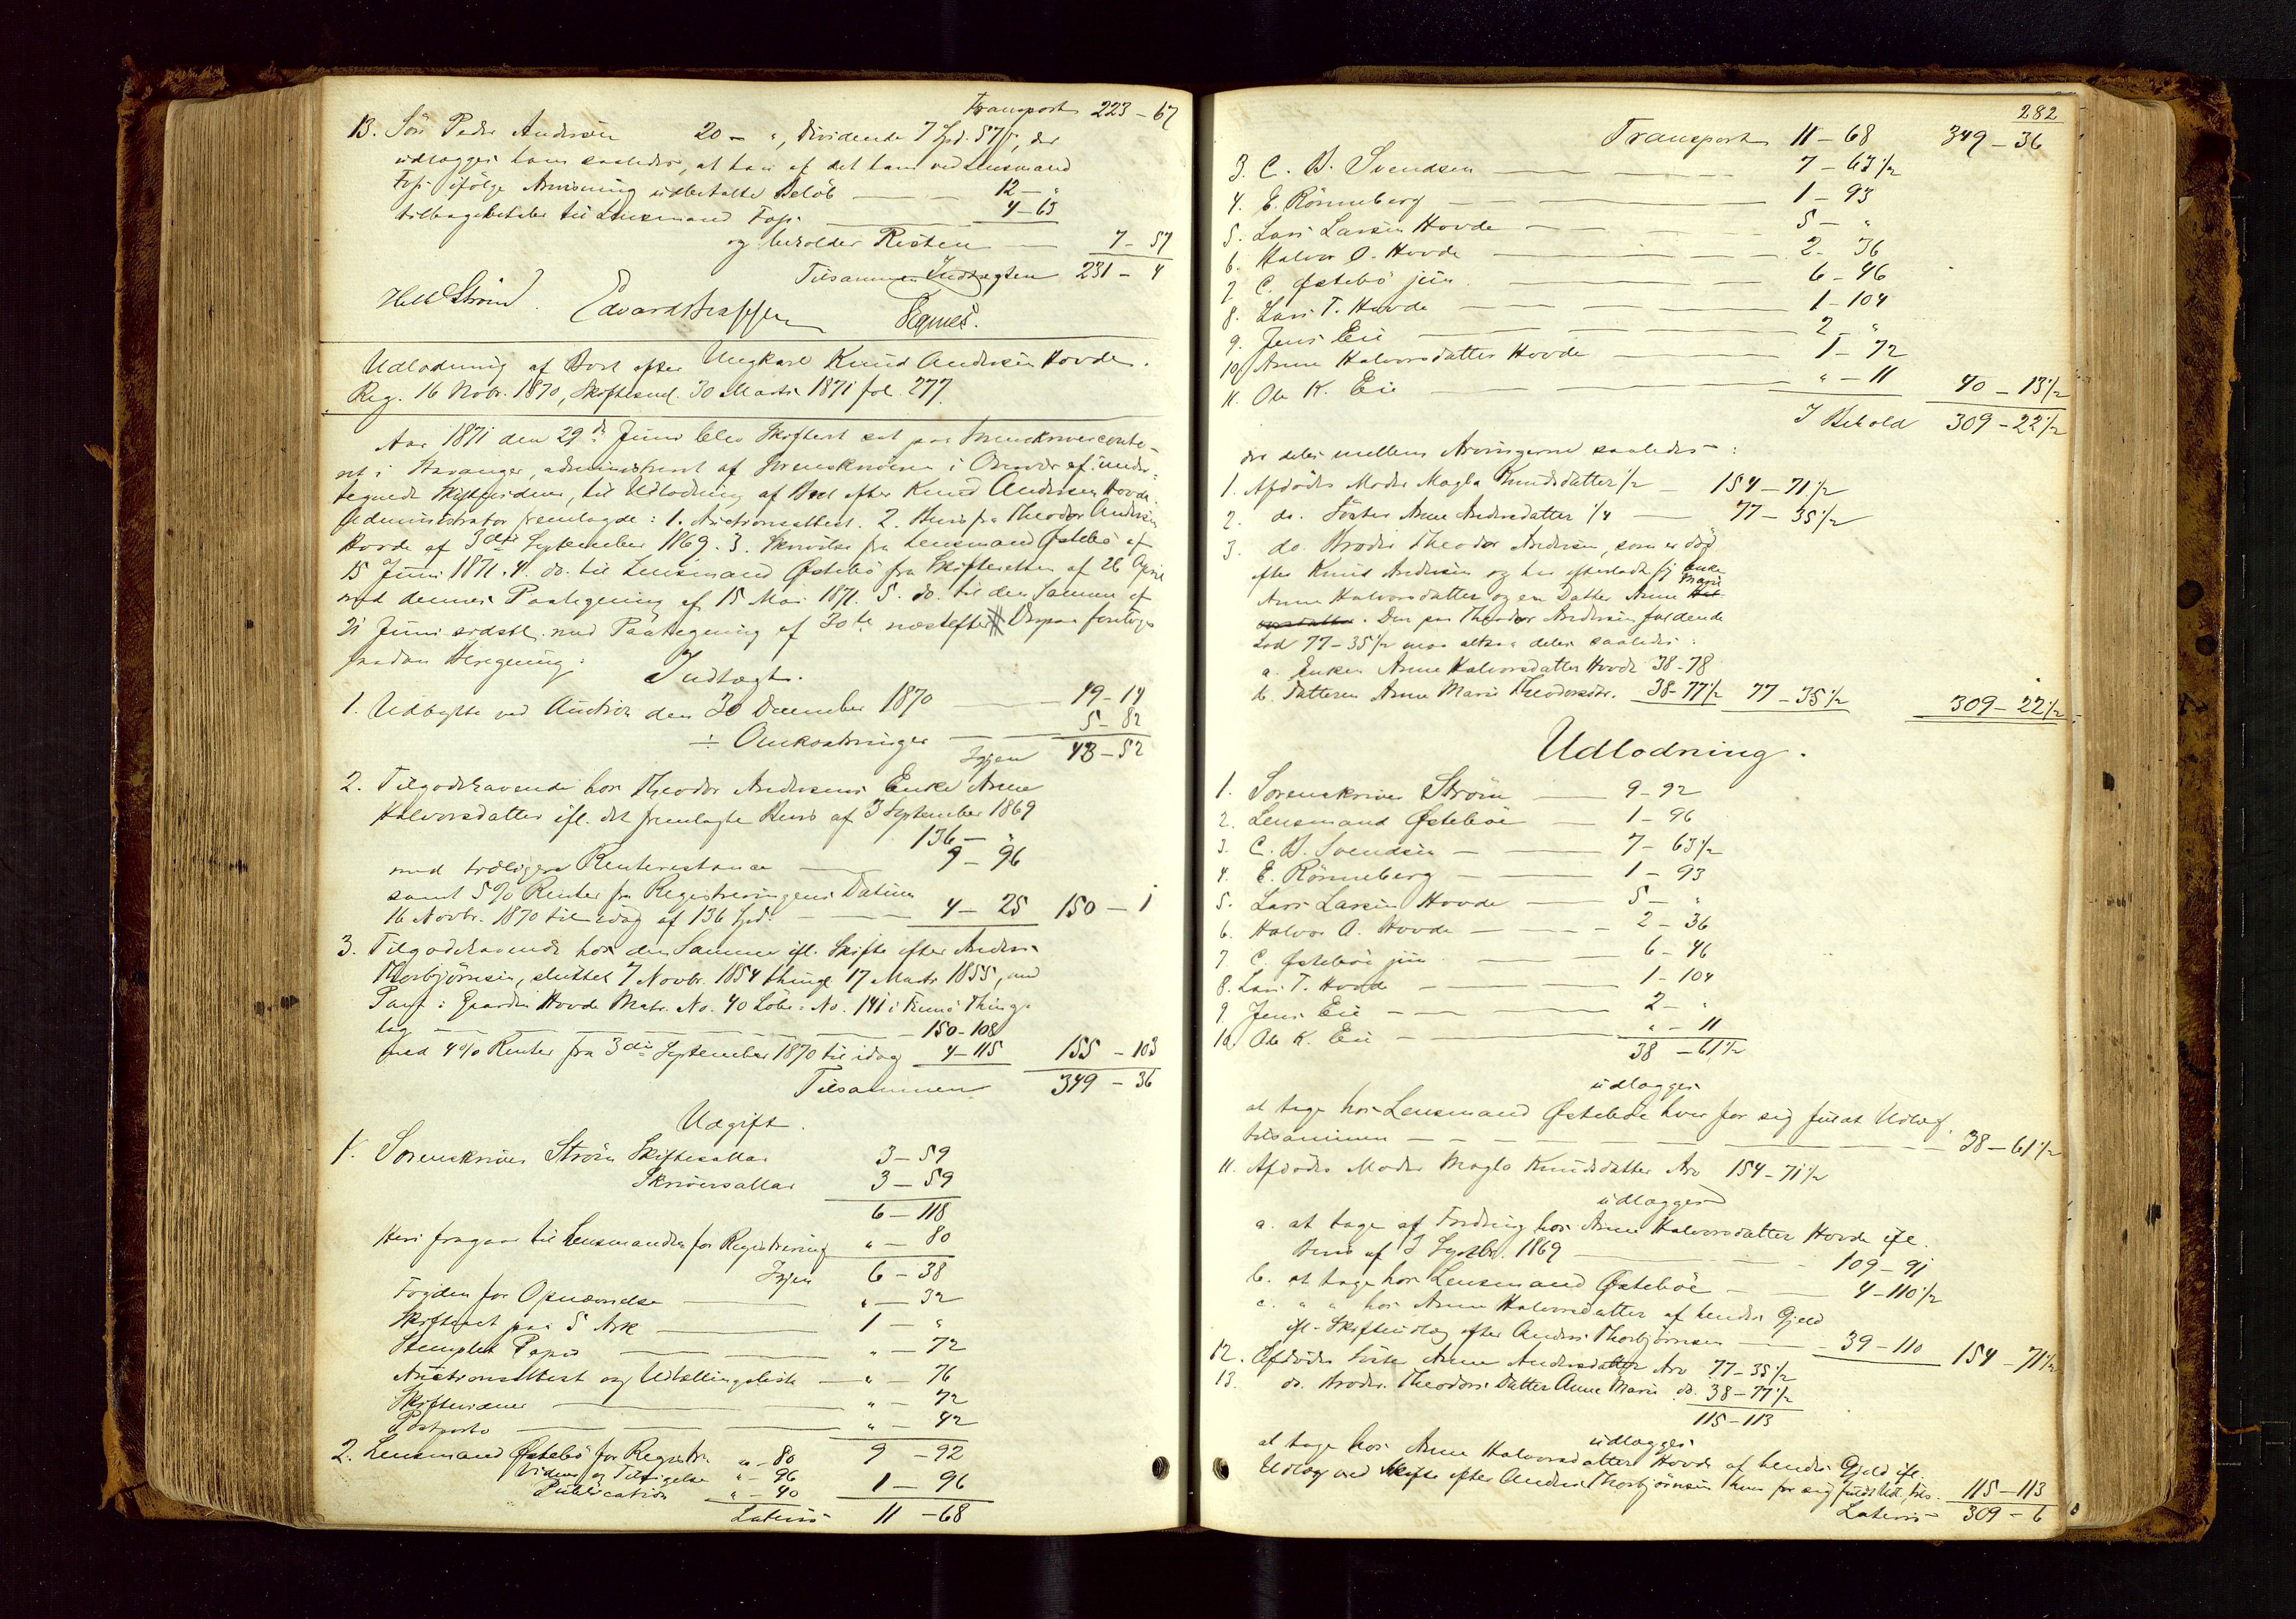 Transport 223 – 67
13. Søn Peder Andersen 20 – „, Dividende 7 Spd. 57 β, der
udlægges ham saaledes, at han af det ham ved Lensmand
ifølge Anvisning udbetalte Beløb — 12 – „
tilbagebetaler til Lensmand — 4 – 63
og beholder Resten — 7 – 57
Tilsammen Indtægten 231 – 4
Strøm
Udlodning af Boet efter Ungkarl Knud Andersen Hovde.
Reg. 16 Novbr. 1870, Skiftesml. 30 Marts 1871 fol. 277.
Aar 1871 den 29de Juni blev Skifteret sat paa Sorenskriverconto-
ret i Stavanger, administreret af Sorenskriveren i Overvær af under-
tegnede Skiftevidner, til Udlodning af Boet efter Knud Andersen Hovde.
Administrator fremlagde: 1. Auctionsattest. 2. Bevis fra Theodor Andersen
Hovde af 3die September 1869. 3. Skrivelse fra Lensmand Østebø af
15 Juni 1871. 4. do. til Lensmand Østebø fra Skifteretten af 26 April
med dennes Paategning af 15 Mai 1871. 5. do. til den Samme af
21 Juni sidstl. med Paategning af 30te næstefter. Derpaa foretoges
saadan Beregning:
Indtægt.
1. Udbytte ved Auction den 30 December 1870 — 49 – 14
÷ Omkostninger — 5 – 82
Igjen 43 – 52
2. Tilgodehavende hos Theodor Andersens Enke Anne
Halvorsdatter ifl. det fremlagte Bevis af 3 September 1869
136 – „
med tidligere Renterestance — 9 – 96
samt 5% Renter fra Registreringens Datum
16 Novbr. 1870 til idag af 136 Spd. — 4 – 25 150 – 1
3. Tilgodehavende hos den Samme ifl. Skifte efter Anders
Thorbjørnsen, sluttet 7 Novbr. 1854 thingl. 17 Marts 1855, med
Pant i Gaarden Hovde Matr. No. 40 Løbe-No. 141 i Thing-
lag — 150 – 108
med 4% Renter fra 3die September 1870 til idag 4 – 115 155 – 103
Tilsammen 349 – 36
Udgift.
1. Sorenskriver Strøm Skiftesallar 3 – 59
Skriversallar 3 – 59
6 – 118
Heri fragaar til Lensmanden for Registrering „ – 80
Igjen 6 – 38
Fogden for Opnævnelse — „ – 32
Skifteret paa 5 Ark — 1 – „
Stemplet Papir — „ – 72
Auctionsattest og Udtællingsliste — „ – 76
Skiftevidner — „ – 72
Postporto — „ – 42
9 – 92
2. Lensmand Østebø for Registr. „ – 80
Vidner og Tilsigelse „ – 96
Publication „ – 40 1 – 96
Lateris 11 – 68
282
Transport 11 – 68 349 – 36
3. C. B. Svendsen — 7 – 63½
4. E. Rønneberg — 1 – 93
5. Lars Larsen Hovde — 5 – „
6. Halvor O. Hovde — 2 – 36
7. C. Østebø jun. — 6 – 46
8. Lars T. Hovde — 1 – 104
9. Jens Eie — 2 – „
10. Anne Halvorsdatter Hovde — 1 – 72
11. Ole K. Eie — „ – 11 40 – 13½
I Behold 309 – 22½
der deles mellem Arvingerne saaledes:
1. Afdødes Moder Magla Knudsdatter ½ — 154 – 71½
2. do. Søster Anne Andersdatter ¼ — 77 – 35½
3. do. Broder Theodor Andersen, som er død
efter Knud Andersen og har efterladt sig Enke
Anne Halvorsdatter og en Datter Anne Marie
Den paa Theodor Andersen faldende
Lod 77 – 35½ maa altsaa deles saaledes:
a. Enken Anne Halvorsdatter Hovde 38 – 78
b. Datteren Anne Marie Theodorsdtr. 38 – 77½ 77 – 35½ 309 – 22½
Udlodning.
1. Sorenskriver Strøm — 9 – 92
2. Lensmand Østebøe — 1 – 96
3. C. B. Svendsen — 7 – 63½
4. E. Rønneberg — 1 – 93
5. Lars Larsen Hovde — 5 – „
6. Halvor O. Hovde — 2 – 36
7. C. Østebøe jun. — 6 – 46
8. Lars T. Hovde — 1 – 104
9. Jens Eie — 2 – „
10. Ole K. Eie — „ – 11
38 – 61½
udlægges
at tage hos Lensmand Østebøe hver for sig fuldt Udlæg,
tilsammen — 38 – 61½
11. Afdødes Moder Magla Knudsdatter Arv 154 – 71½
udlægges
a. at tage af Fordring hos Anne Halvorsdatter Hovde ifl.
Bevis af 3 Septbr. 1869 — 109 – 91
b. at tage hos Lensmand Østebøe — 4 – 110½
c. „ „ hos Anne Halvorsdatter af hendes Gjeld
ifl. Skifteudlæg efter Anders Thorbjørnsen — 39 – 110 154 – 71½
12. Afdødes Søster Anne Andersdatter Arv 77 – 35½
13. do. Broder Theodors Datter Anne Marie do. 38 – 77½
115 – 113
udlægges
at tage hos Anne Halvorsdatter Hovde af hendes Gjeld ifl.
Udlæg ved Skifte efter Anders Thorbjørnsen hver for sig fuldt Udl., tils. 115 – 113
Lateris 309 – 6